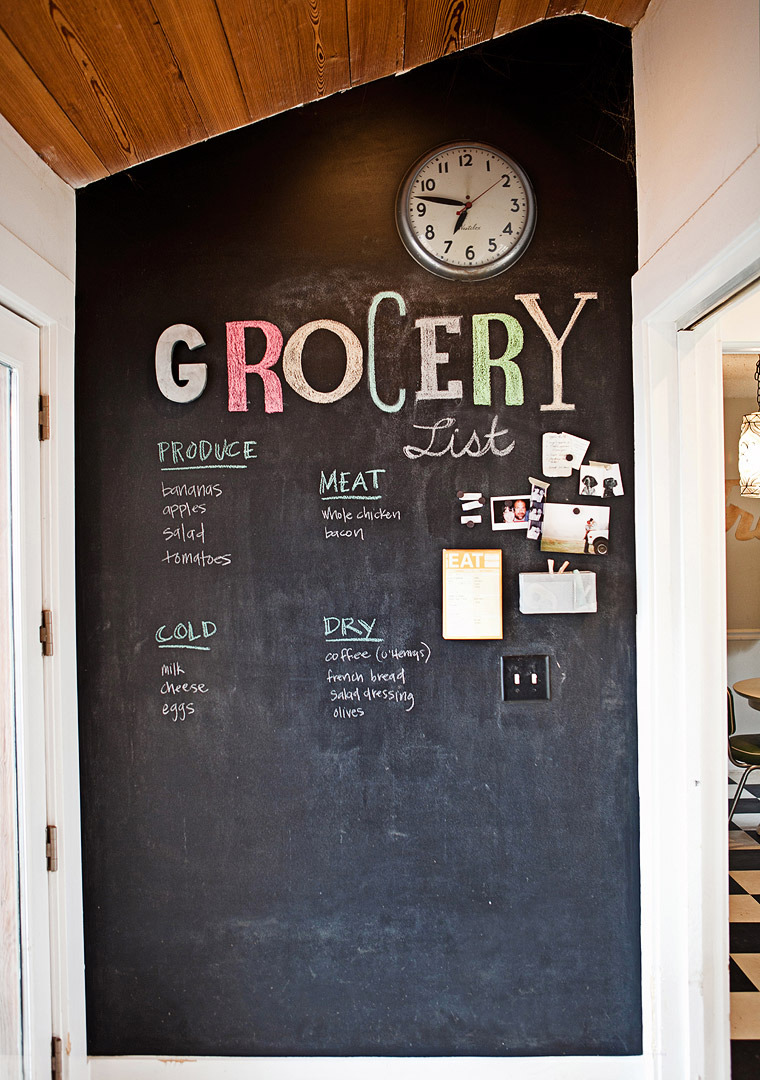 12
1
2
3
4
5
6
7
8
9
10
11
Westclox
GROCERY
List
PRODUCE
bananas
apples
salad
tomatoes
MEAT
whole chicken
bacon
EAT
COLD
milk
cheese
eggs
DRY
coffee (O'Henrys)
french bread
salad dressing
olives